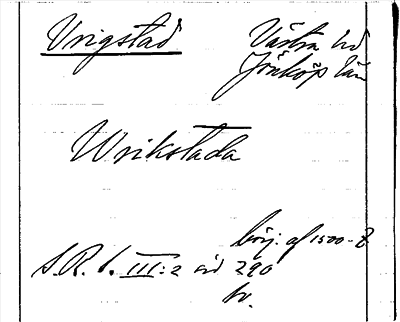 Vrigstad
Västra hd
Jönköp. län
Wrikstada
börj. af 1500-t.
S.R.I. III:2 sid 290
hr.